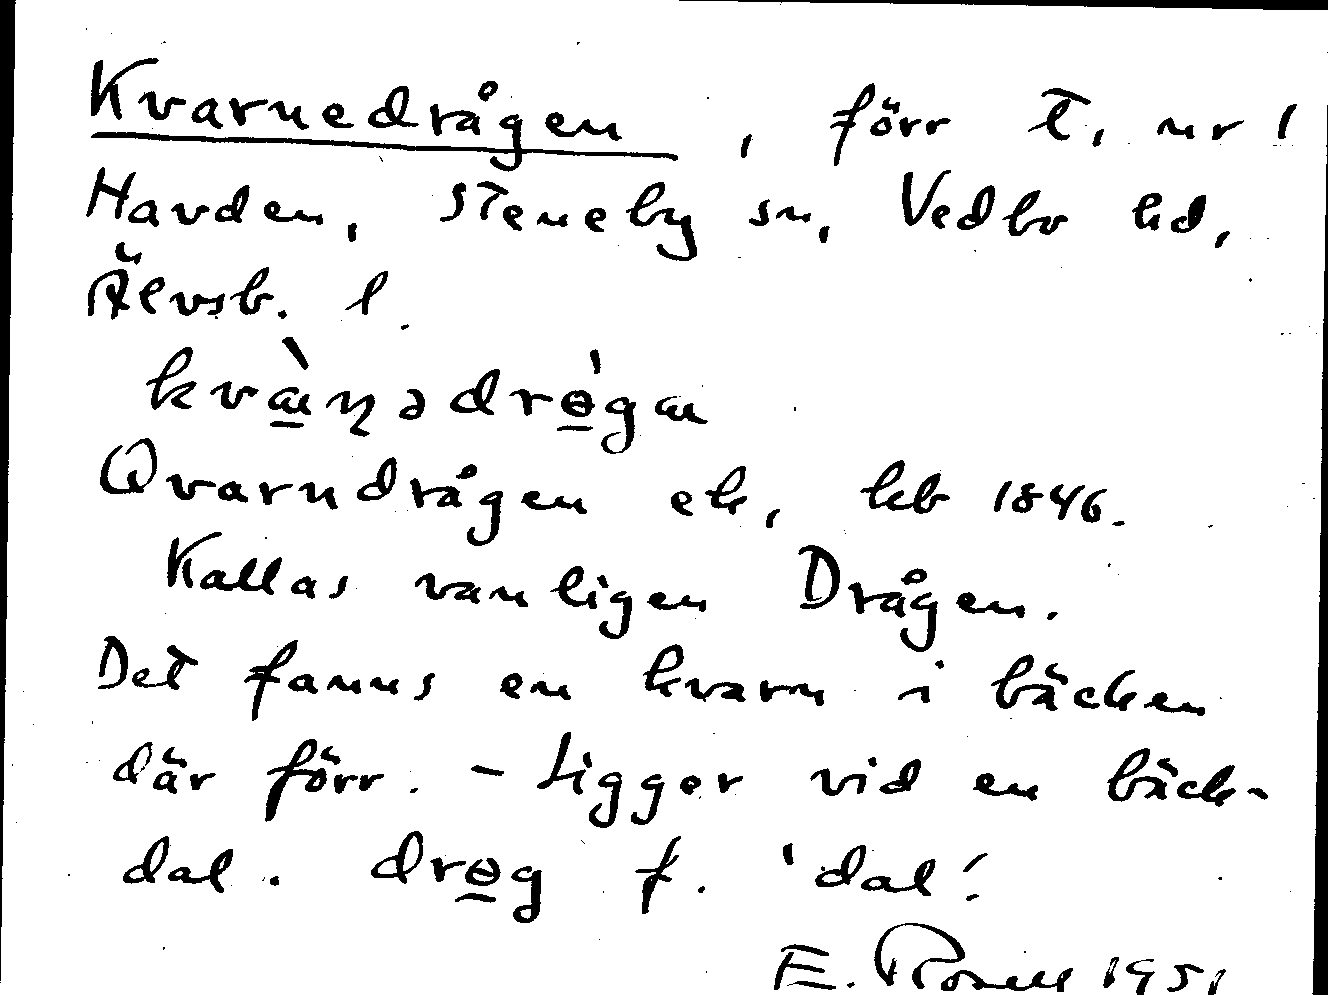 Kvarnedrågen, förr T. nr 1
Havden, Steneby sn, Vedbo hd,
Älvsb. l.
kvæ̀ɳədrɵ́gæ
Qvarndrågen ek, kb 1846.
Kallas vanligen Drågen.
Det fanns en kvarn i bäcken
där förr. - Ligger vid en bäck-
dal. drɵg f. 'dal'.
E. Rosell 1951